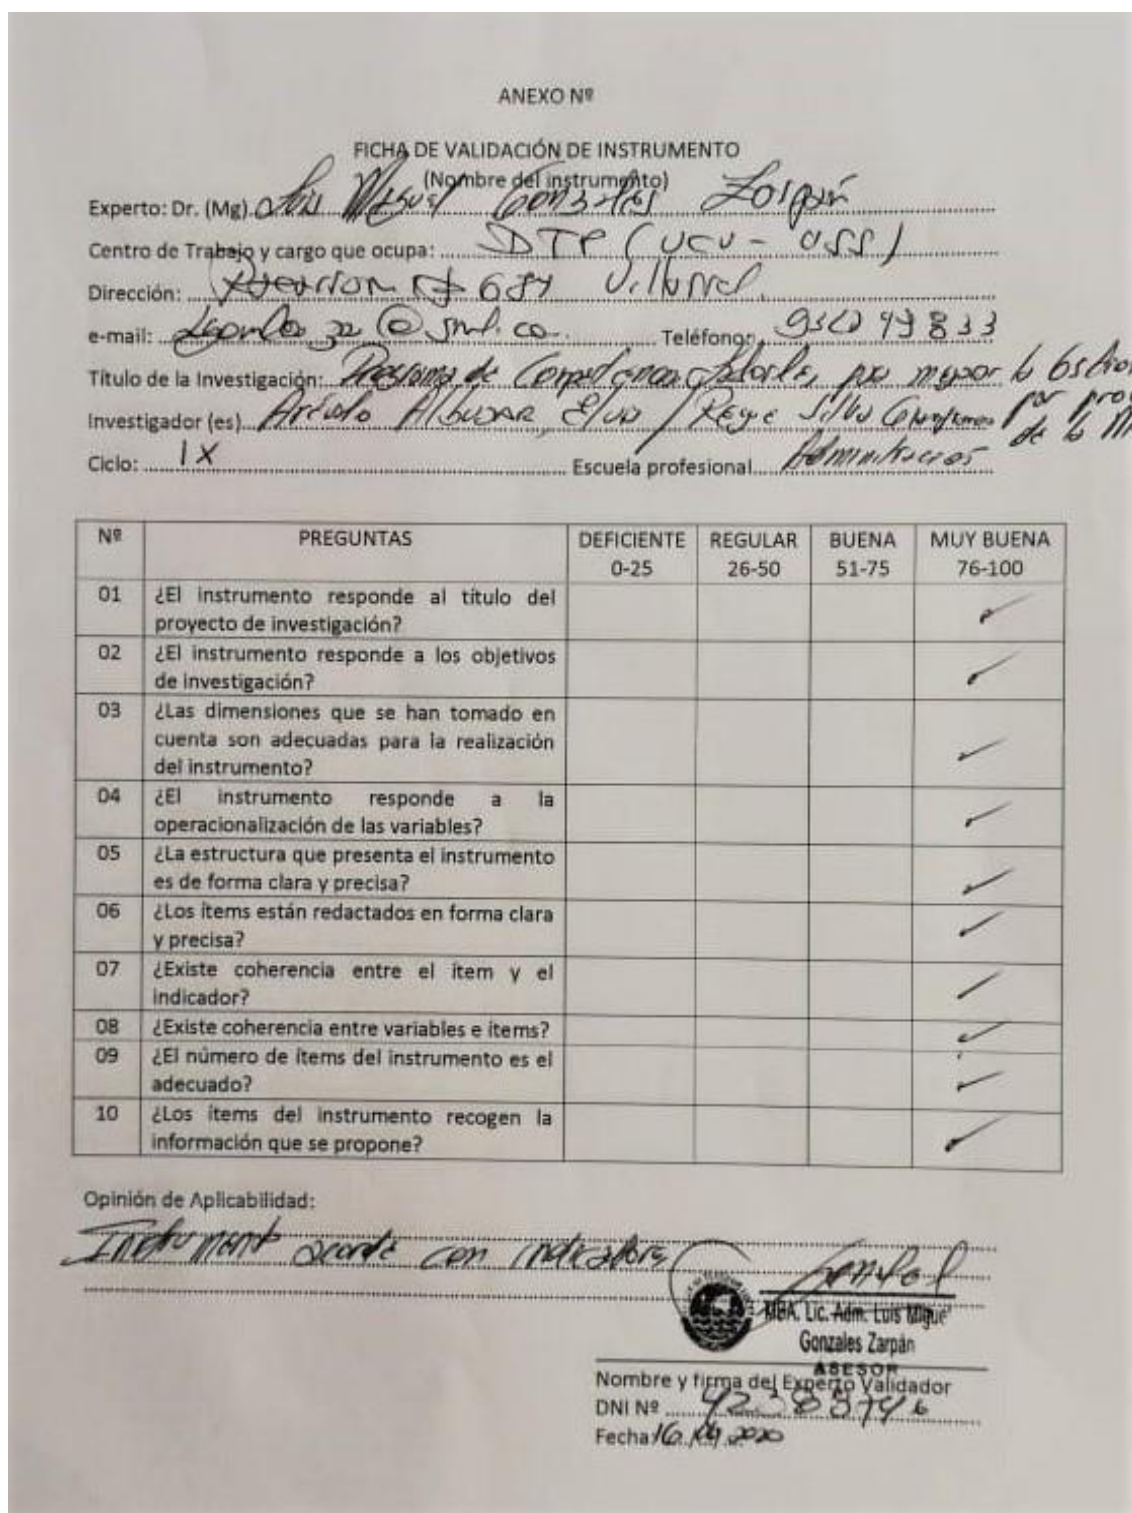 ANEXO Nº
FICHA DE VALIDACIÓN DE INSTRUMENTO
(Nombre del instrumento)
Experto: Dr. (Mg) Luis Miguel Gonzales Zarpán
Centro de Trabajo y cargo que ocupa: DTP (UCV - USS)
Dirección: 684 Villarreal
e-mail: Teléfono:
Título de la Investigación: Programa de para mejorar la
Investigador (es) Arévalo / Silva
Ciclo: IX Escuela profesional Administración
Nº PREGUNTAS DEFICIENTE REGULAR BUENA MUY BUENA
0-25 26-50 51-75 76-100
01 ¿El instrumento responde al título del
proyecto de investigación?
02 ¿El instrumento responde a los objetivos
de investigación?
03 ¿Las dimensiones que se han tomado en
cuenta son adecuadas para la realización
del instrumento?
04 ¿El instrumento responde a la
operacionalización de las variables?
05 ¿La estructura que presenta el instrumento
es de forma clara y precisa?
06 ¿Los ítems están redactados en forma clara
y precisa?
07 ¿Existe coherencia entre el ítem y el
indicador?
08 ¿Existe coherencia entre variables e ítems?
09 ¿El número de ítems del instrumento es el
adecuado?
10 ¿Los ítems del instrumento recogen la
información que se propone?
Opinión de Aplicabilidad:
Instrumento acorde con indicadores
MBA. Lic. Adm. Luis Miguel
Gonzales Zarpán
ASESOR
Nombre y firma del Experto Validador
DNI Nº
Fecha 16 2020